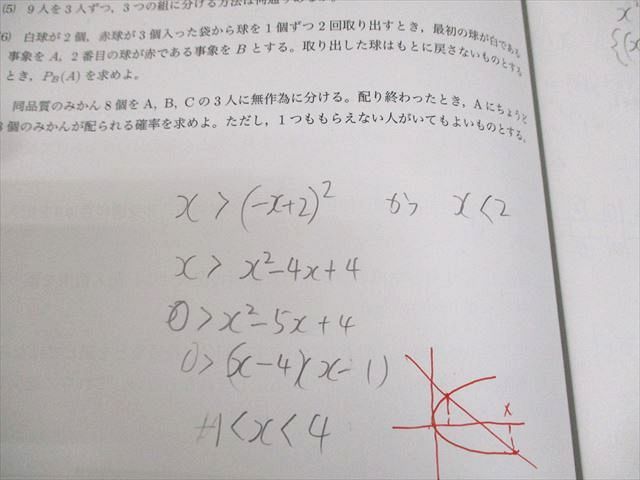 (5) 9人を3人ずつ，3つの組に分ける方法は何通りあるか。
(6) 白球が2個，赤球が3個入った袋から球を1個ずつ2回取り出すとき，最初の球が白である
事象をA，2番目の球が赤である事象をBとする。取り出した球はもとに戻さないものとする
とき，P_B(A)を求めよ。
同品質のみかん8個をA，B，Cの3人に無作為に分ける。配り終わったとき，Aにちょうど
3個のみかんが配られる確率を求めよ。ただし，1つももらえない人がいてもよいものとする。
x > (-x+2)² かつ x < 2
x > x²-4x+4
0 > x²-5x+4
0 > (x-4)(x-1)
1 < x < 4
x
x
{(x